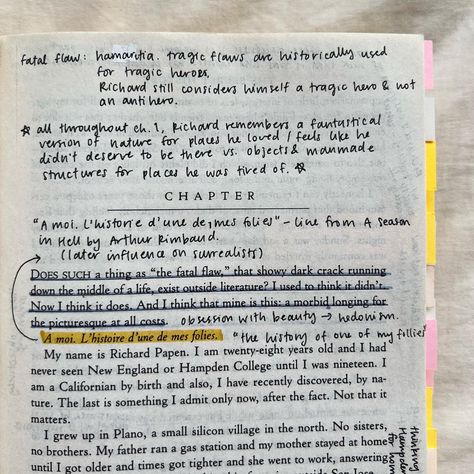 fatal flaw: hamartia. tragic flaws are historically used
for tragic heroes,
Richard still considers himself a tragic hero & not
an antihero.
☆ all throughout ch. 1, Richard remembers a fantastical
version of nature for places he loved / feels like he
didn't deserve to be there vs. objects & manmade
structures for places he was tired of. ☆
CHAPTER
"A moi. L'historie d'une de, mes folies" - line from A Season
in Hell by Arthur Rimbaud.
(later influence on surrealists)
DOES SUCH a thing as "the fatal flaw," that showy dark crack running
down the middle of a life, exist outside literature? I used to think it didn't.
Now I think it does. And I think that mine is this: a morbid longing for
the picturesque at all costs. obsession with beauty → hedonism.
A moi. L'histoire d'une de mes folies. "the history of one of my follies"
My name is Richard Papen. I am twenty-eight years old and I had
never seen New England or Hampden College until I was nineteen. I
am a Californian by birth and also, I have recently discovered, by na-
ture. The last is something I admit only now, after the fact. Not that it
matters.
I grew up in Plano, a small silicon village in the north. No sisters,
no brothers. My father ran a gas station and my mother stayed at home
until I got older and times got tighter and she went to work, answering
thinking